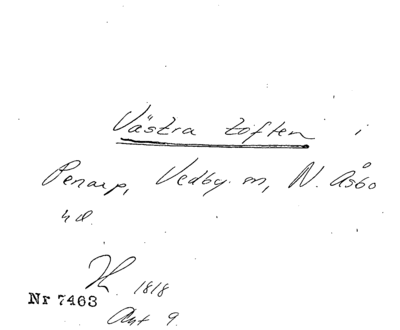 Västra toften i
Penarp, Vedby sn, N. Åsbo
hd.
1818
Nr 7403
Akt 9.